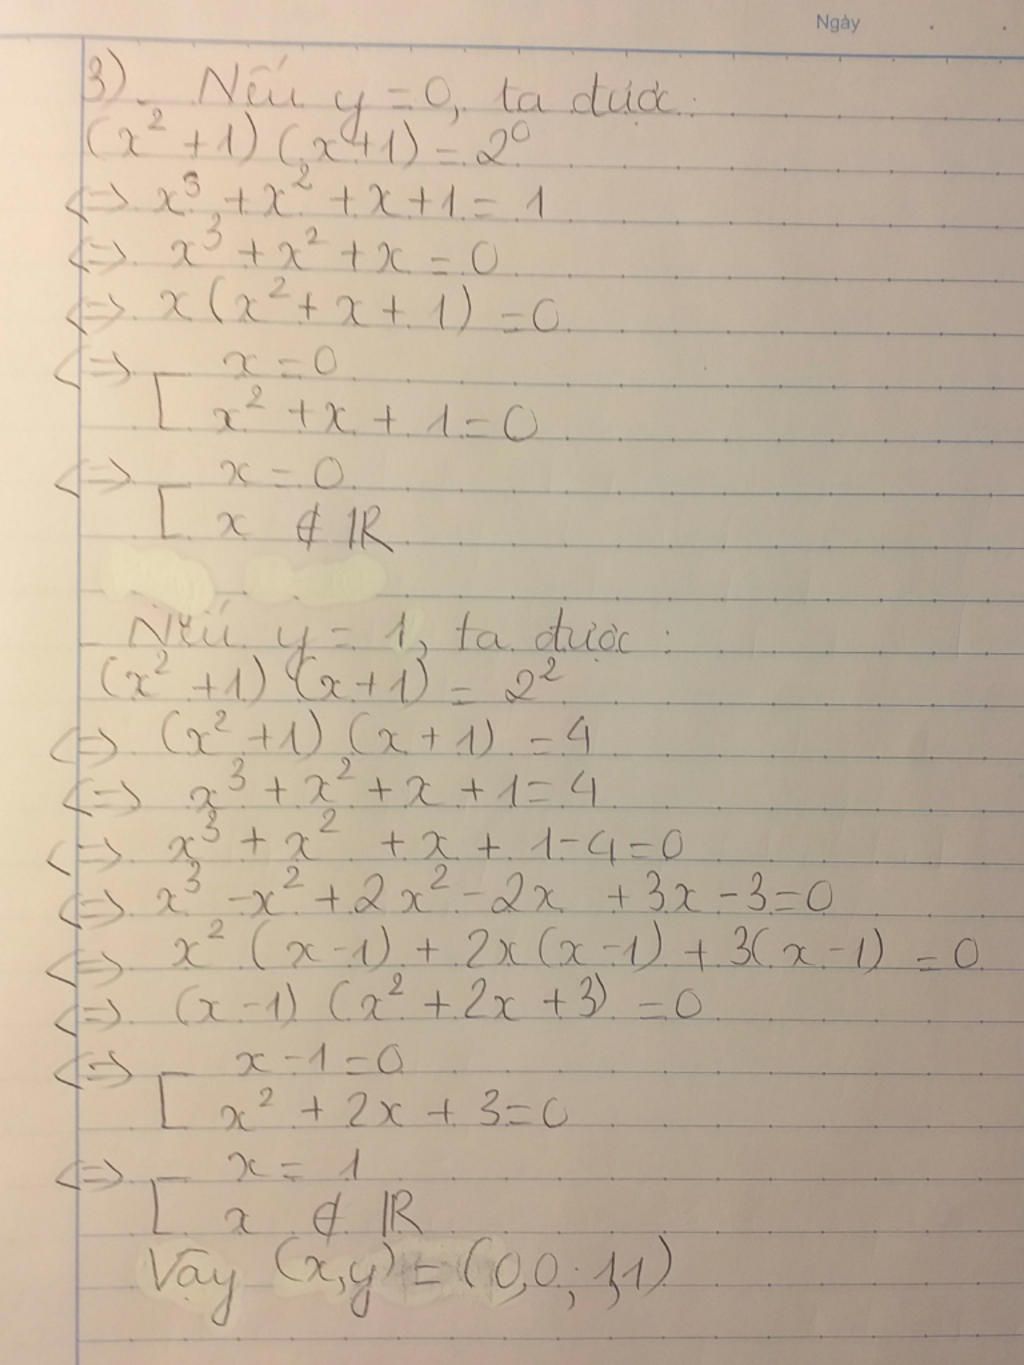 Ngày
3) Nếu y = 0, ta được:
(x² + 1) (x + 1) = 2⁰
<=> x³ + x² + x + 1 = 1
<=> x³ + x² + x = 0
<=> x (x² + x + 1) = 0
<=> [ x = 0
x² + x + 1 = 0
<=> [ x = 0
x ∉ ℝ
Nếu y = 1, ta được:
(x² + 1) (x + 1) = 2²
<=> (x² + 1) (x + 1) = 4
<=> x³ + x² + x + 1 = 4
<=> x³ + x² + x + 1 - 4 = 0
<=> x³ - x² + 2x² - 2x + 3x - 3 = 0
<=> x² (x - 1) + 2x (x - 1) + 3(x - 1) = 0
<=> (x - 1) (x² + 2x + 3) = 0
<=> [ x - 1 = 0
x² + 2x + 3 = 0
<=> [ x = 1
x ∉ ℝ
Vậy (x,y) = (0,0; 1,1)